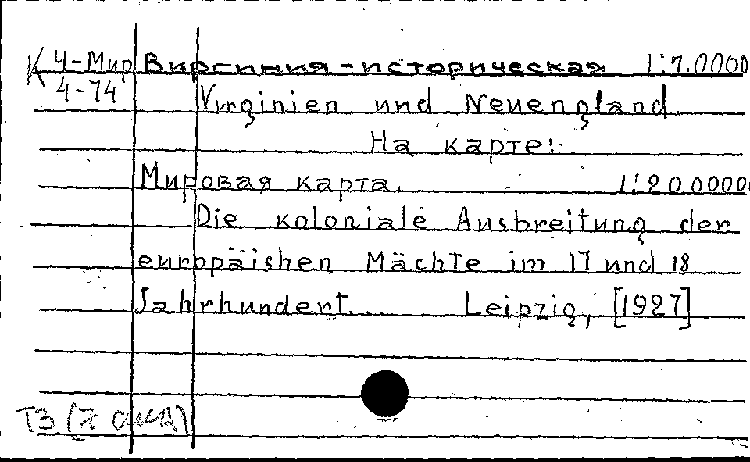 К 4-Мир Виргиния-историческая 1:7.0000
4-74 Virginien und Neuengland
На карте:
Мировая карта. 1:200000
Die koloniale Ausbreitung der
europäishen Mächte im 17 und 18
Jahrhundert. Leipzig, [1927]
ТЗ (7